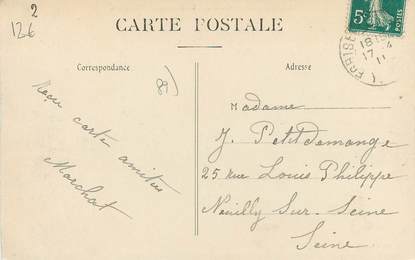 2
126
CARTE POSTALE
5c
POSTES
18
17 -4
11
Correspondance
Adresse
Reçu
carte amitiés
Marchat
Madame
J. Petitdemange
25 rue Louis Philippe
Neuilly Sur Seine
Seine